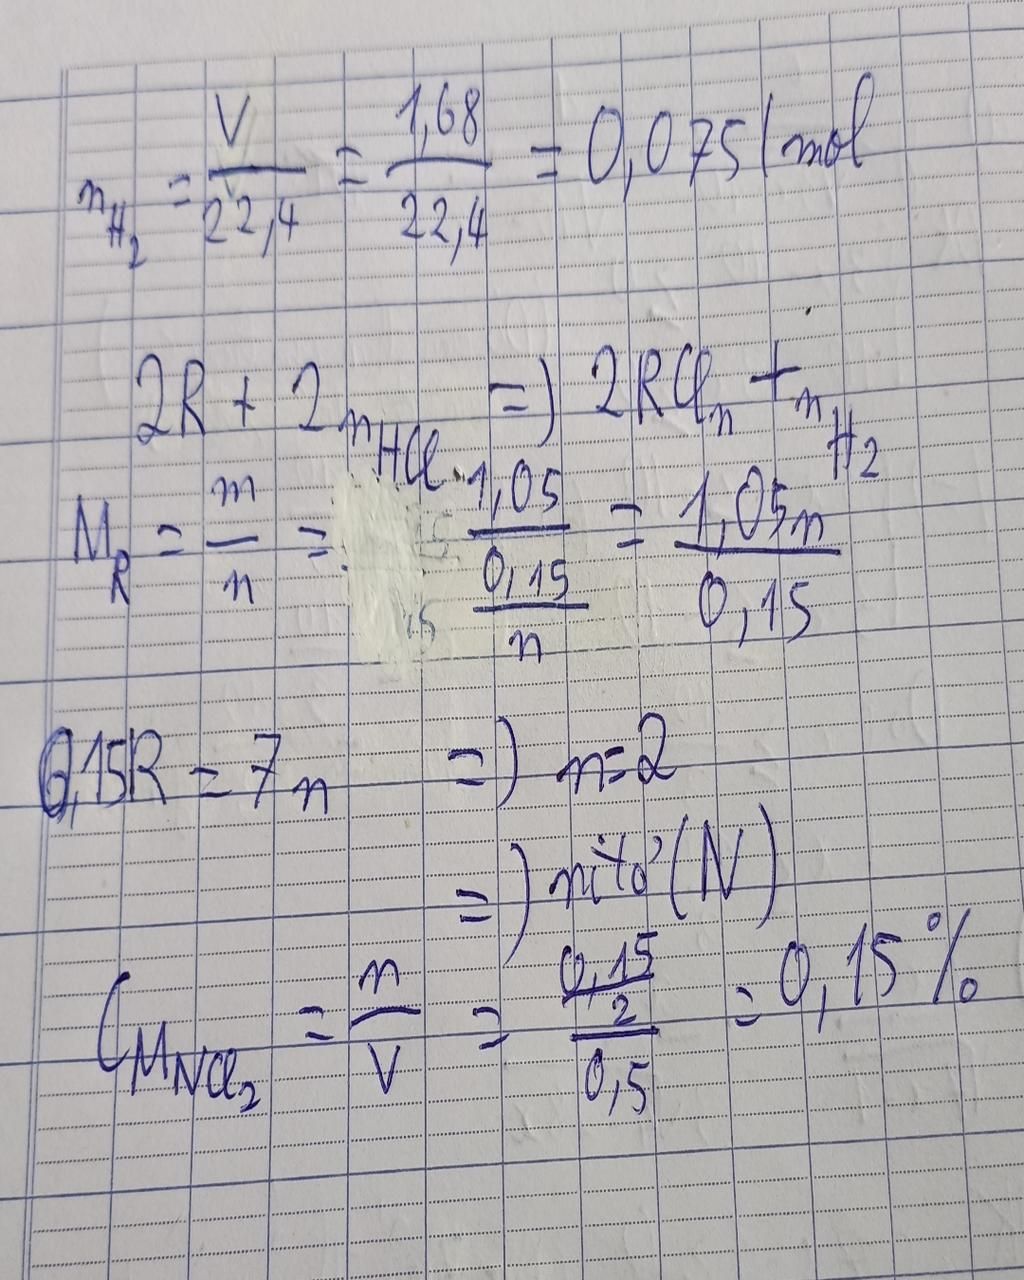 n_H₂ = V/22,4 = 1,68/22,4 = 0,075 (mol
2R + 2nHCl => 2RCln + nH₂
M_R = m/n = 1,05/(0,15/n) = 1,05n/0,15
0,15R = 7n => n=2
=> nitơ (N)
C_M NCl₂ = n/V = (0,15/2)/0,5 = 0,15%